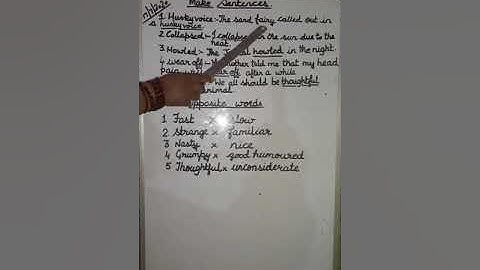 Make Sentences
1 Husky voice:- The sand fairy called out in
a husky voice.
2 Collapsed:- I collapse in the sun due to the
heat.
3 Howled:- The howled in the night.
4 wear off:- mother told me that my head
pain will wear off after a while
We all should be thoughtful
animal.
opposite words
1 Fast × slow
2 Strange × familiar
3 Nasty × nice
4 Grumpy × good humoured
5 Thoughtful × unconsiderate